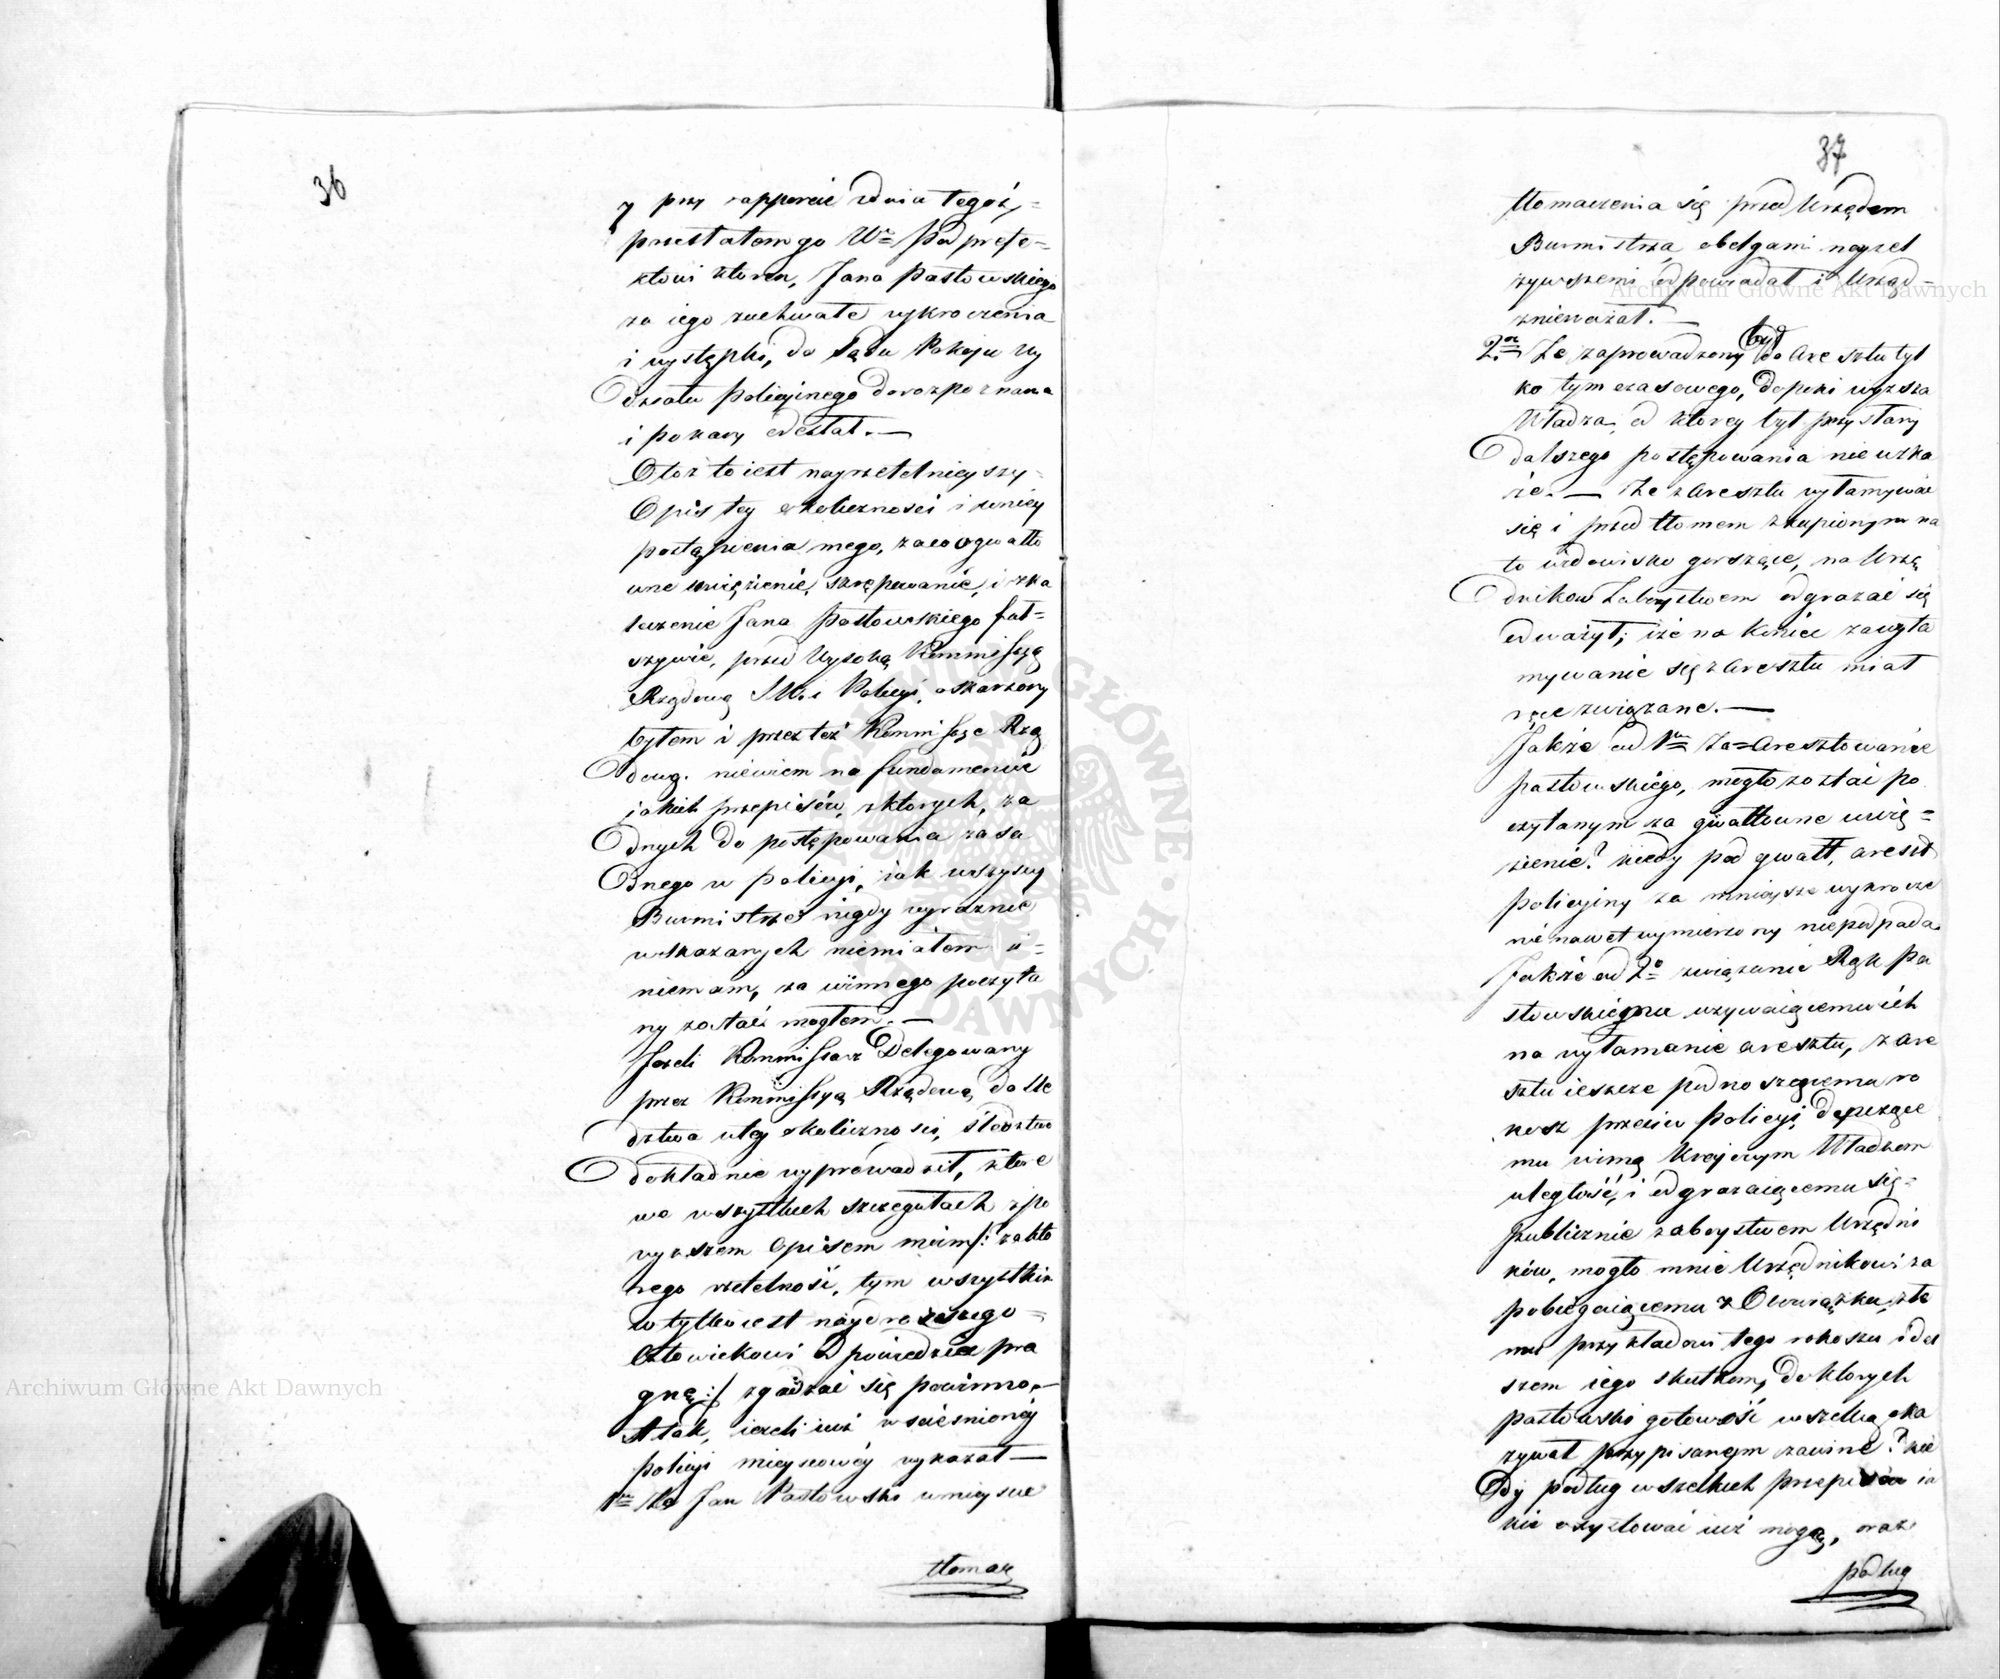 36
y przy rapporcie zdnia tegoż,=
przesłałem go We Podprefe=
ktowi ktoren, Jana Pastowskiego
za iego zuchwałe wykroczenia
i występki, do Sądu Pokoju Wy
działu policyinego do rozpoznania
i pokary odesłał.—
Otoż to iest nayrzetelnieyszy
Opis tey okoliczności i winiey
postąpienia mego, zaco o gwałto
wne uwięzienie, skrępowanie, i ska
leczenie Jana Pastowskiego fał=
szywie, przed Wysoką Kommissyą
Rządową S.W. i Policyi, oskarzony
byłem i przez też Kommissyę Rzą
dową. niewiem na fundamencie
jakich przepisów, z ktorych, ża
dnych do postępowania zasa
dnego w policyi, iak wszyscy
Burmistrze nigdy wyraznie
wskazanych niemiałem i=
niemam, za winnego poczyta
ny zostać mogłem.—
Jezeli Kommissarz Delegowany
przez Kommissyą Rządową do Sle
dztwa w tey okoliczności, śledztwo
dokładnie wyprowadził, ktore
we wszystkich szczegułach z po
wyzszem Opisem moim /: za kto
rego rzetelność, tym wszystkim
co tylko iest naydrozszego=
Człowiekowi Odpowiedzieć pra
gnę :/ zgadzać się powinno,—
A tak, iezeli iuż w scieśnioney
policyi mieyscowey wykazał—
1mo Że Jan Pastowski w mieysce
tłomacz
37
tłomaczenia się przed Urzędem
Burmistrza, obelgami nayzel
zywszemi odpowiadał i Urząd=
znieważał.—
2do Że zaprowadzony był do Aresztu tyl
ko tymczasowego, dopóki wyzsza
Władza, od ktorey był przysłany
dalszego postępowania nie wska
że.— Że z Aresztu wyłamywać
się i przed tłomem zkupionym na
to widowisko gorszące, na Urzę
dników Zaboystwem odgrazać się
odważył; iże na koniec za wyła
mywanie się z Aresztu miał
ręce związane.—
Jakże ad 1mum Za=Aresztowanie
Pastowskiego, mogło zostać po
czytanym za gwałtowne uwię=
zienie? kiedy pod gwałt, areszt
policyiny za mnieysze wykrocze
nie nawet wymierzony niepodpada.
Jakże ad 2do związanie Rąk Pa
stowskiemu używaiącemu ich
na wyłamanie aresztu, z are
sztu ieszcze podnoszącemu ro
kosz przeciw Policyi, depczące
mu winną Kraiowym Władzom
uległość, i odgrazaiącemu się=
publicznie zaboystwem Urzędni
ków, mogło mnie Urzędnikowi za
pobiegaiącemu z Obowiązku, złe
mu przykładowi tego rokoszu i dal
szem iego skutkom, do ktorych
Pastowski gotowość wszelką oka
zywał przypisanym za winę? kie
dy podług wszelkich przepisów ia
kie exystować iuż mogą, oraz
podług